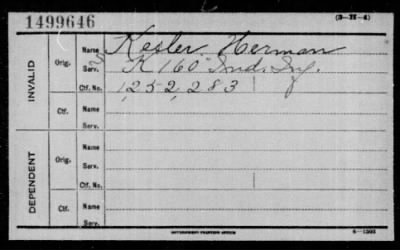 1499646
(3-II-4)
INVALID
Orig.
Name Kesler, Herman
Serv. K 160" Ind. Inf.
Ctf. No. 1,252,283
Ctf.
Name
Serv.
DEPENDENT
Orig.
Name
Serv.
Ctf. No.
Ctf.
Name
Serv.
GOVERNMENT PRINTING OFFICE